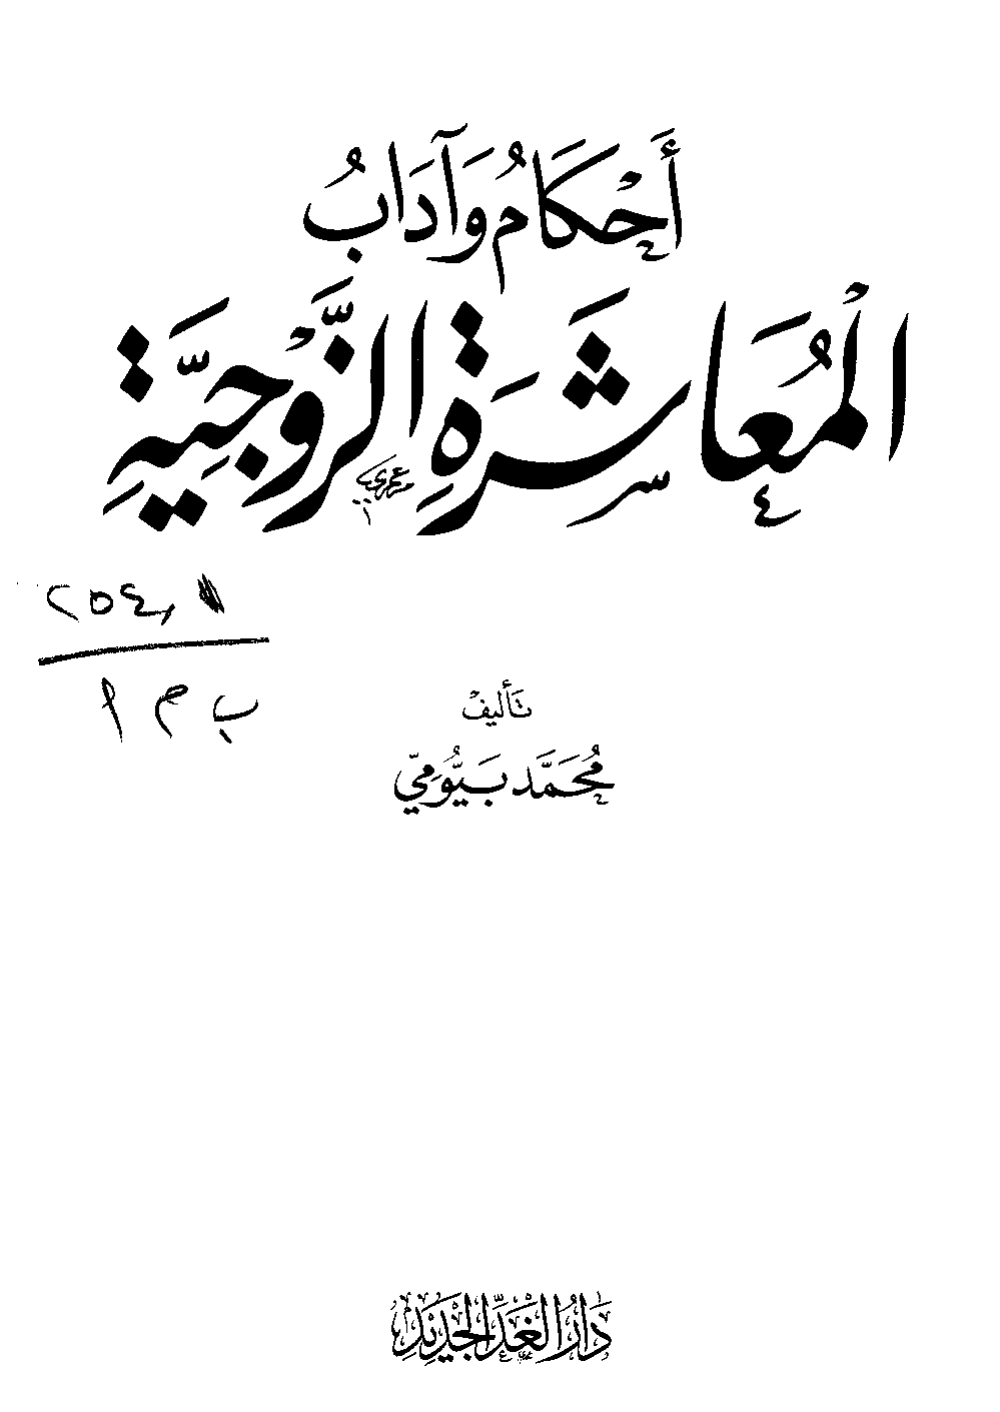 أَحْكَامُ وَآدَابُ
الْمُعَاشَرَةِ الزَّوْجِيَّةِ
٢٥٤,١
ب م ا
تَأليفْ
مُحَمَّد بَيُّومِيّ
دَارُ الْغَدِّ الْجَدِيْدِ